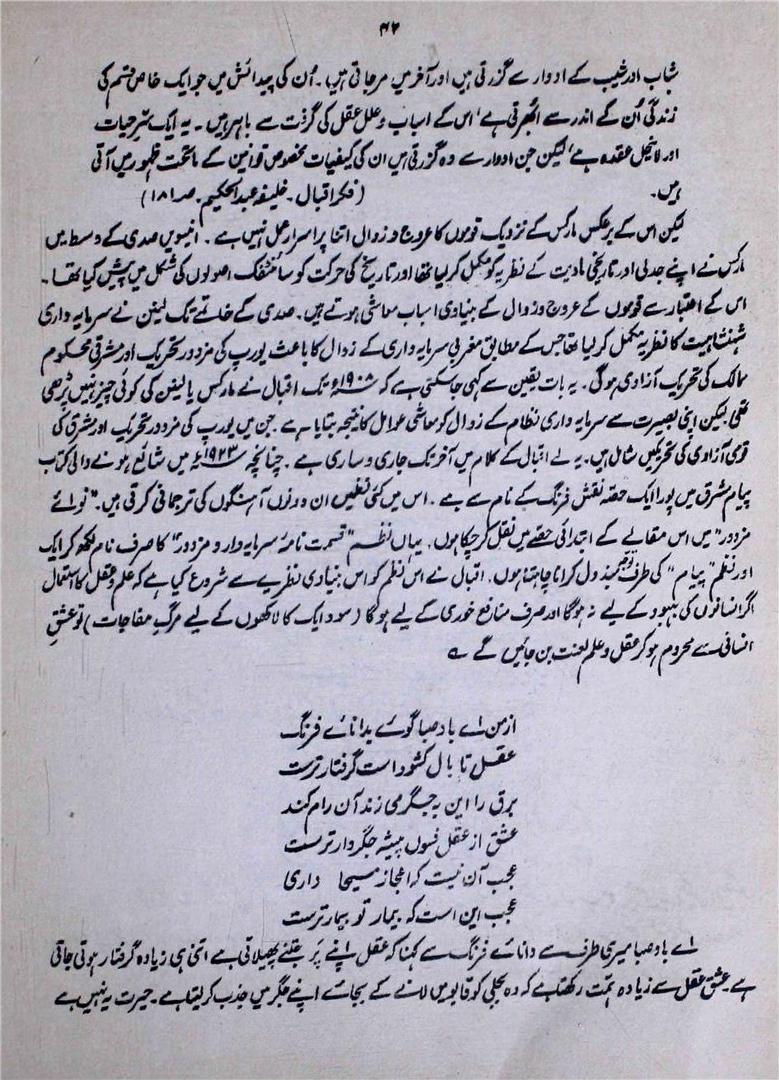 ۴۲
شباب اور شیب کے ادوار سے گزرتی ہیں اور آخر میں مرجاتی ہیں۔ اُن کی پیدائش میں جو ایک خاص قسم کی
زندگی اُن کے اندر سے اُبھرتی ہے، اس کے اسباب و علل عقل کی گرفت سے باہر ہیں۔ یہ ایک سّرِ حیات
اور لاینحل عقدہ ہے، لیکن جن ادوار سے وہ گزرتی ہیں ان کی کیفیات مخصوص قوانین کے ماتحت ظہور میں آتی
ہیں۔ (فکر اقبال۔ خلیفہ عبدالحکیم۔ صہ ۱۸۱)
لیکن اس کے برعکس مارکس کے نزدیک قوموں کا عروج و زوال اتنا پر اسرار عمل نہیں ہے۔ انیسویں صدی کے وسط میں
مارکس نے اپنے جدلی اور تاریخی مادیت کے نظریہ کو مکمل کرلیا تھا اور تاریخ کی حرکت کو سائنٹفک اصولوں کی شکل میں پیش کیا تھا۔
اس کے اعتبار سے قوموں کے عروج و زوال کے بنیادی اسباب معاشی ہوتے ہیں۔ صدی کے خاتمے تک لینن نے سرمایہ داری
شہنشاہیت کا نظریہ مکمل کرلیا تھا جس کے مطابق مغربی سرمایہ داری کے زوال کا باعث یورپ کی مزدور تحریک اور مشرقی محکوم
ممالک کی تحریک آزادی ہوگی۔ یہ بات یقین سے کہی جاسکتی ہے کہ ۱۹۰۸ء تک اقبال نے مارکس یا لینن کی کوئی چیز نہیں پڑھی
تھی لیکن اپنی بصیرت سے سرمایہ داری نظام کے زوال کو معاشی عوامل کا نتیجہ بتایا ہے۔ جن میں یورپ کی مزدور تحریک اور مشرق کی
قومی آزادی کی تحریکیں شامل ہیں۔ یہ لے اقبال کے کلام میں آخر تک جاری و ساری ہے۔ چنانچہ ۱۹۲۳ء میں شائع ہونے والی کتاب
پیام مشرق میں پورا ایک حصّہ نقش فرنگ کے نام سے ہے۔ اس میں کئی نظمیں ان دونوں آہنگوں کی ترجمانی کرتی ہیں۔ "نوائے
مزدور" میں اس مقالے کے ابتدائی حصّے میں نقل کرچکا ہوں۔ یہاں نظم "قسمت نامۂ سرمایہ دار و مزدور" کا صرف نام لکھ کر ایک
اور نظم "پیام" کی طرف توجہ مبذول کرانا چاہتا ہوں۔ اقبال نے اس نظم کو اس بنیادی نظریے سے شروع کیا ہے کہ علم و عقل کا استعمال
اگر انسانوں کی بہبود کے لیے نہ ہوگا اور صرف منافع خوری کے لیے ہوگا (سود ایک کا لاکھوں کے لیے مرگِ مفاجات) تو عشقِ
انسانی سے محروم ہوکر عقل و علم لعنت بن جائیں گے ؎
از من اے باد صبا گوئے بدانائے فرنگ
عقل تا بال کشود است گرفتار ترست
برق را این بہ جگر می زند آن رام کند
عشق از عقل فسوں پیشہ جگردار ترست
عجب آن نیست کہ اعجاز مسیحا داری
عجب این است کہ بیمار تو بیمار ترست
اے باد صبا میری طرف سے دانائے فرنگ سے کہنا کہ عقل اپنے پَر جتنے پھیلاتی ہے اتنی ہی زیادہ گرفتار ہوتی جاتی
ہے۔ عشق عقل سے زیادہ ہمّت رکھتا ہے کہ وہ بجلی کو قابو میں لانے کے بجائے اپنے جگر میں جذب کرلیتا ہے۔ حیرت یہ نہیں ہے